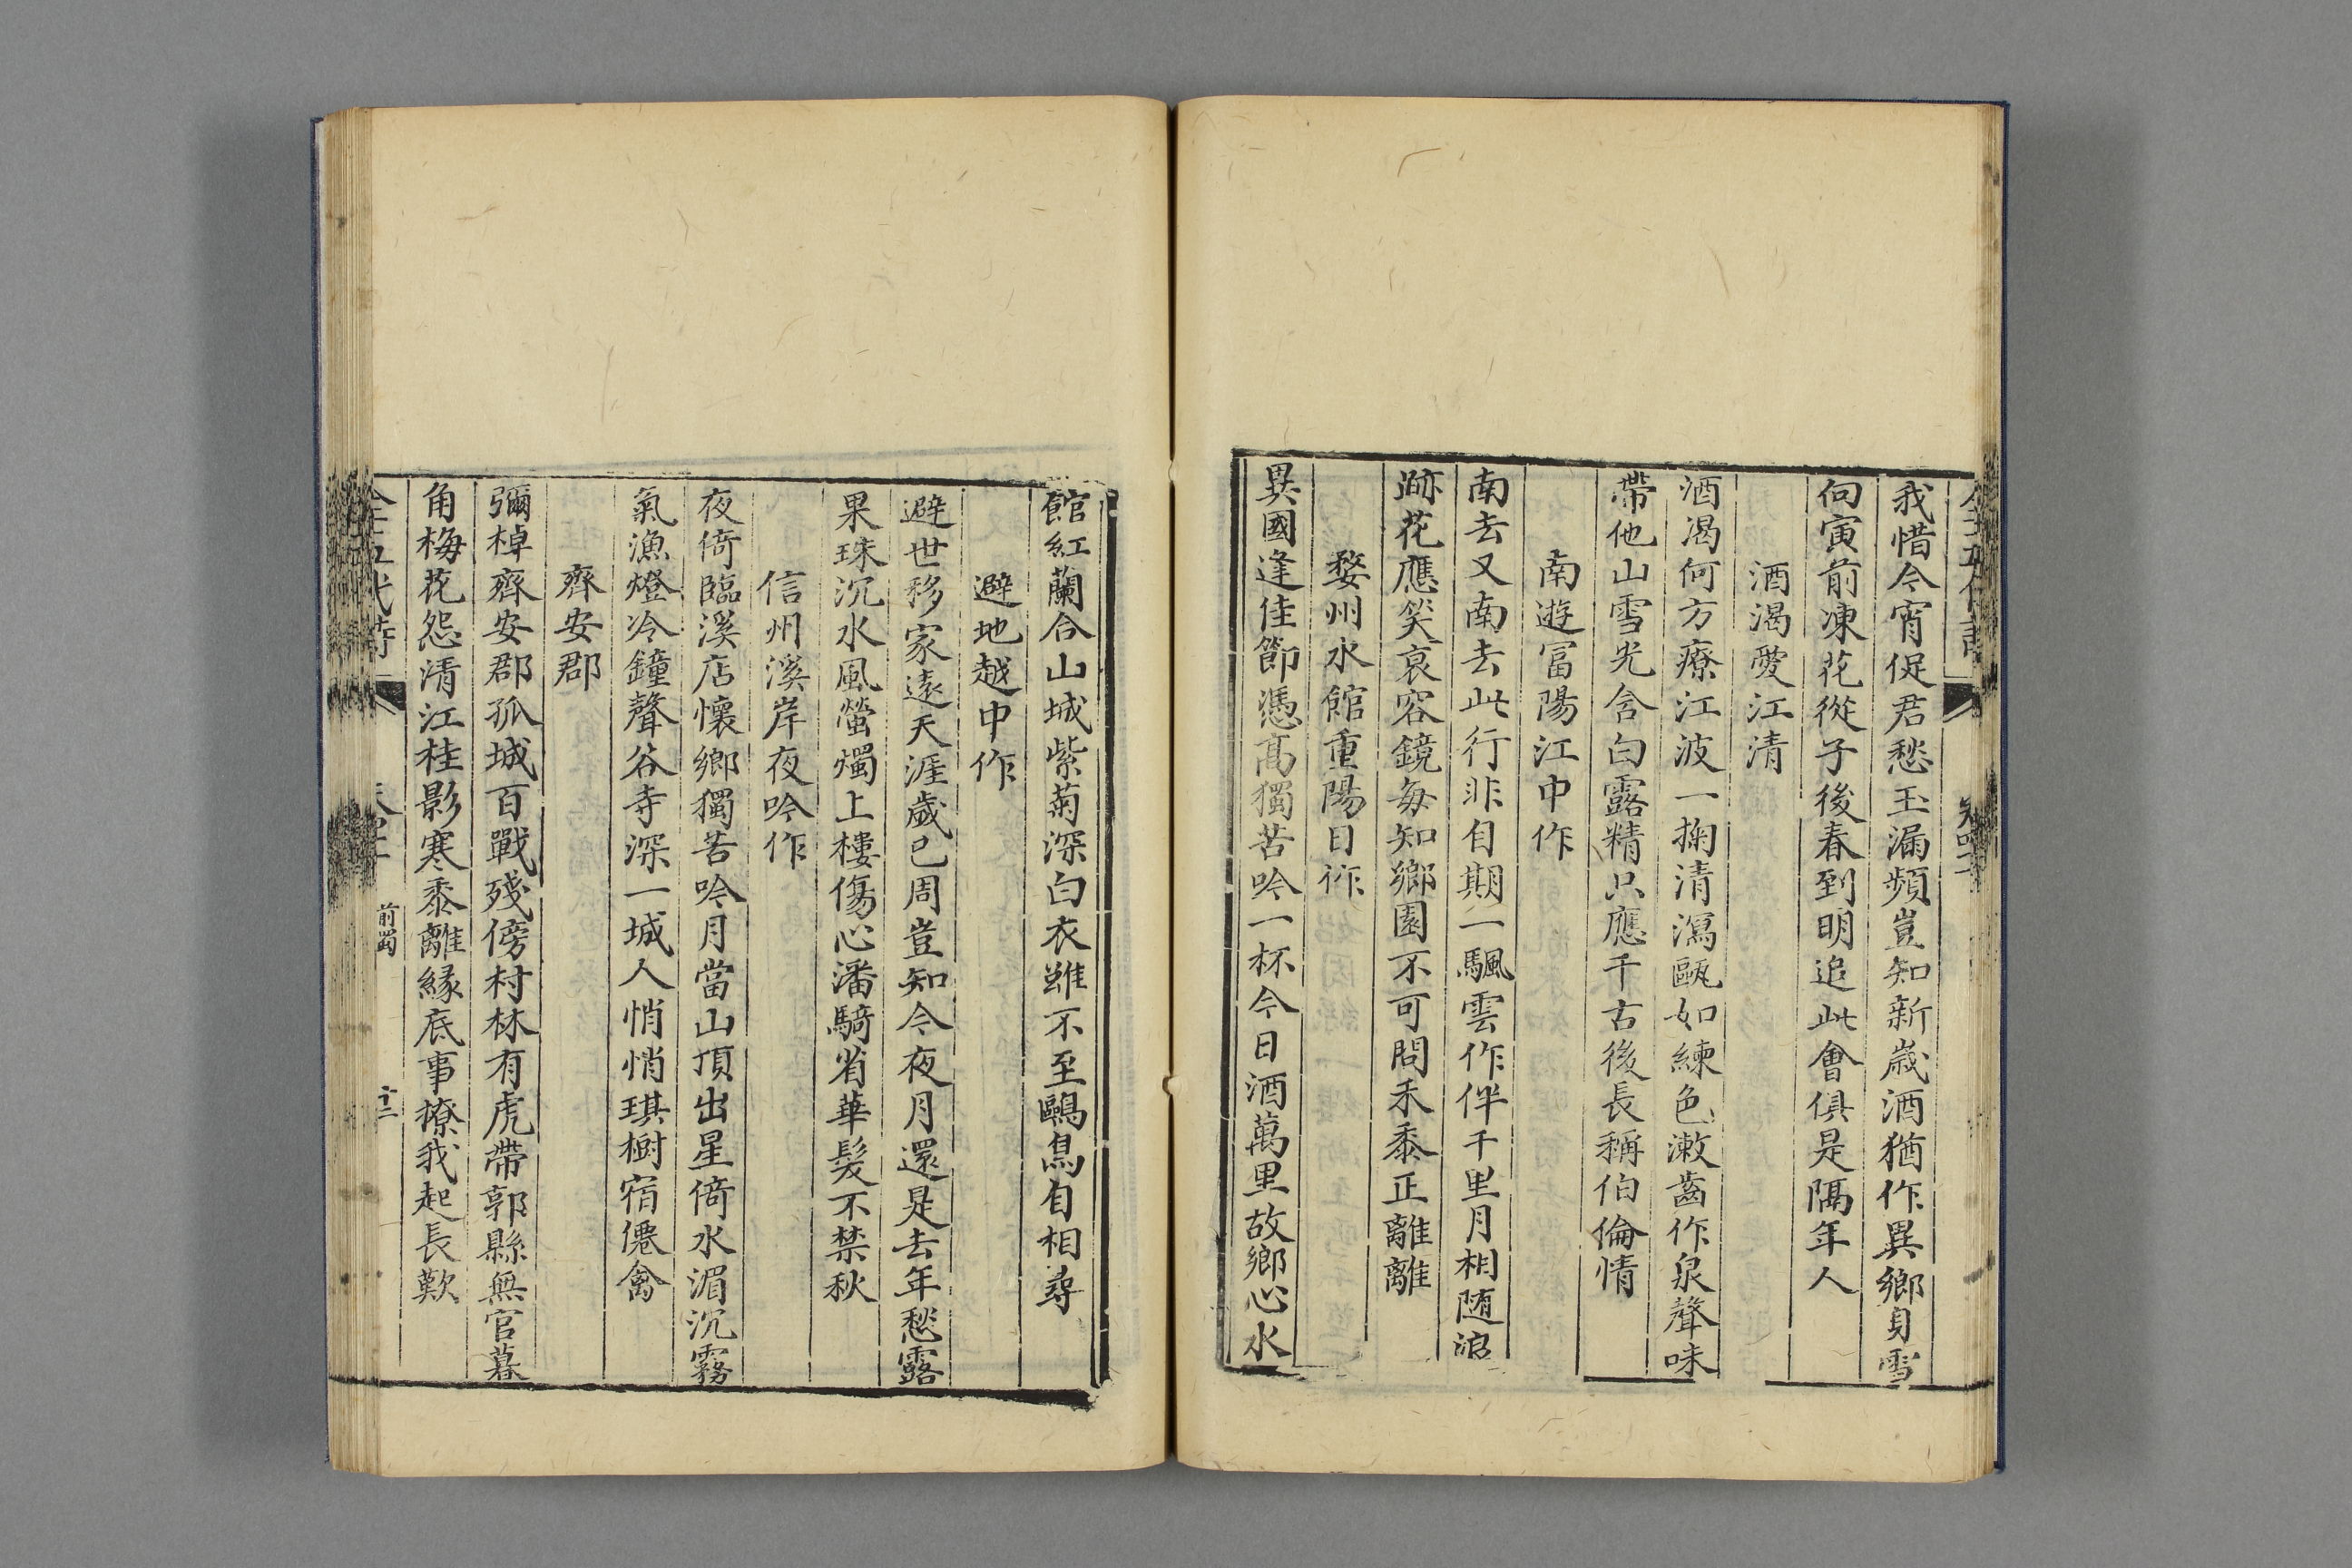 我惜今宵促君愁玉漏頻豈知新歳酒猶作異鄉身雪
向寅前凍花從子後春到明追此會俱是隔年人
酒渴愛江清
酒渴何方療江波一掬清瀉甌如練色漱齒作泉聲味
帶他山雪光含白露精只應千古後長稱伯倫情
南遊富陽江中作
南去又南去此行非自期一颿雲作伴千里月相随浪
跡花應笑衰容鏡每知鄉園不可問禾黍正離離
婺州水館重陽日作
異國逢佳節憑髙獨苦吟一杯今日酒萬里故鄉心水
館紅蘭合山城紫菊深白衣雖不至鷗鳥自相尋
避地越中作
避世移家遠天涯歲已周豈知今夜月還是去年愁露
果珠沉水風螢燭上樓傷心潘騎省華髮不禁秋
信州溪岸夜吟作
夜倚臨溪店懷鄉獨苦吟月當山頂出星倚水湄沉霧
氣漁燈冷鐘聲谷寺深一城人悄悄琪樹宿僊禽
齊安郡
彌棹齊安郡孤城百戰殘傍村林有虎帶郭縣無官暮
角梅花怨清江桂影寒黍離緣底事撩我起長歎
前蜀
十二